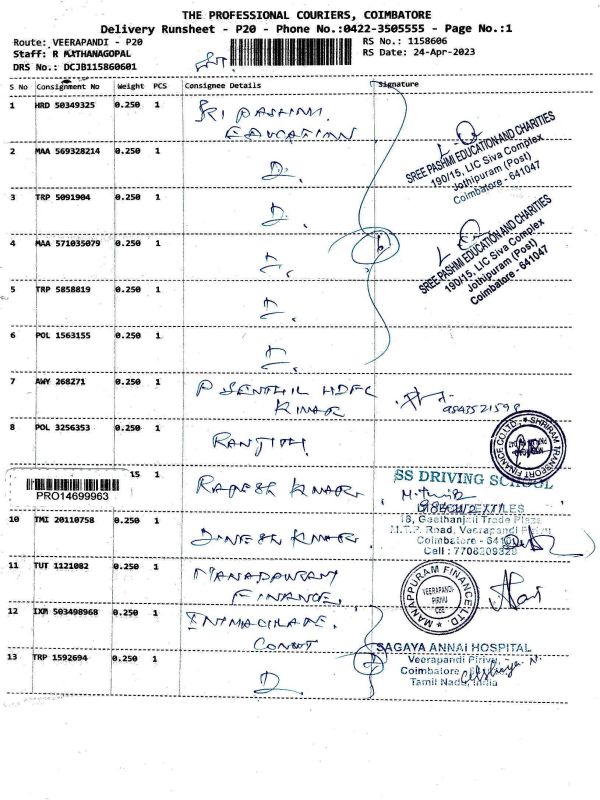 THE PROFESSIONAL COURIERS, COIMBATORE
Delivery Runsheet - P20 - Phone No.:0422-3505555 - Page No.:1
Route: VEERAPANDI - P20
RS No.: 1158606
Staff: R MATHANAGOPAL
RS Date: 24-Apr-2023
DRS No.: DCJB115860601
S No Consignment No Weight PCS Consignee Details Signature
1 HRD 50349325 0.250 1 SRI PASHMI
EDUCATION
2 MAA 569328214 0.250 1 D.
SREE PASHMI EDUCATION AND CHARITIES
190/15, LIC Siva Complex
Jothipuram (Post)
Coimbatore - 641047
3 TRP 5091904 0.250 1 D.
4 MAA 571035079 0.250 1
SREE PASHMI EDUCATION AND CHARITIES
190/15, LIC Siva Complex
Jothipuram (Post)
Coimbatore - 641047
5 TRP 5858819 0.250 1
6 POL 1563155 0.250 1
7 AWY 268271 0.250 1 P SENTHIL HDFC
KUMAR
8 POL 3256353 0.250 1 RANJITH
SHRIRAM TRANSPORT FINANCE CO LTD
PRO14699963
15 1 RAJESH KUMAR
SS DRIVING SCHOOL
18, Geethanjali Trade Plaza
M.T.P. Road, Veerapandi Pirivu
Coimbatore - 641
Cell : 7708209320
10 TMI 20110758 0.250 1 DINESH KUMAR
11 TUT 1121082 0.250 1 MANAPPURAM
FINANCE.
MANAPPURAM FINANCE LTD
VEERAPANDI-
PIRIVU
CBE
12 IXM 503498968 0.250 1
13 TRP 1592694 0.250 1 D.
SAGAYA ANNAI HOSPITAL
Veerapandi Pirivu,
Coimbatore
Tamil Nadu, India